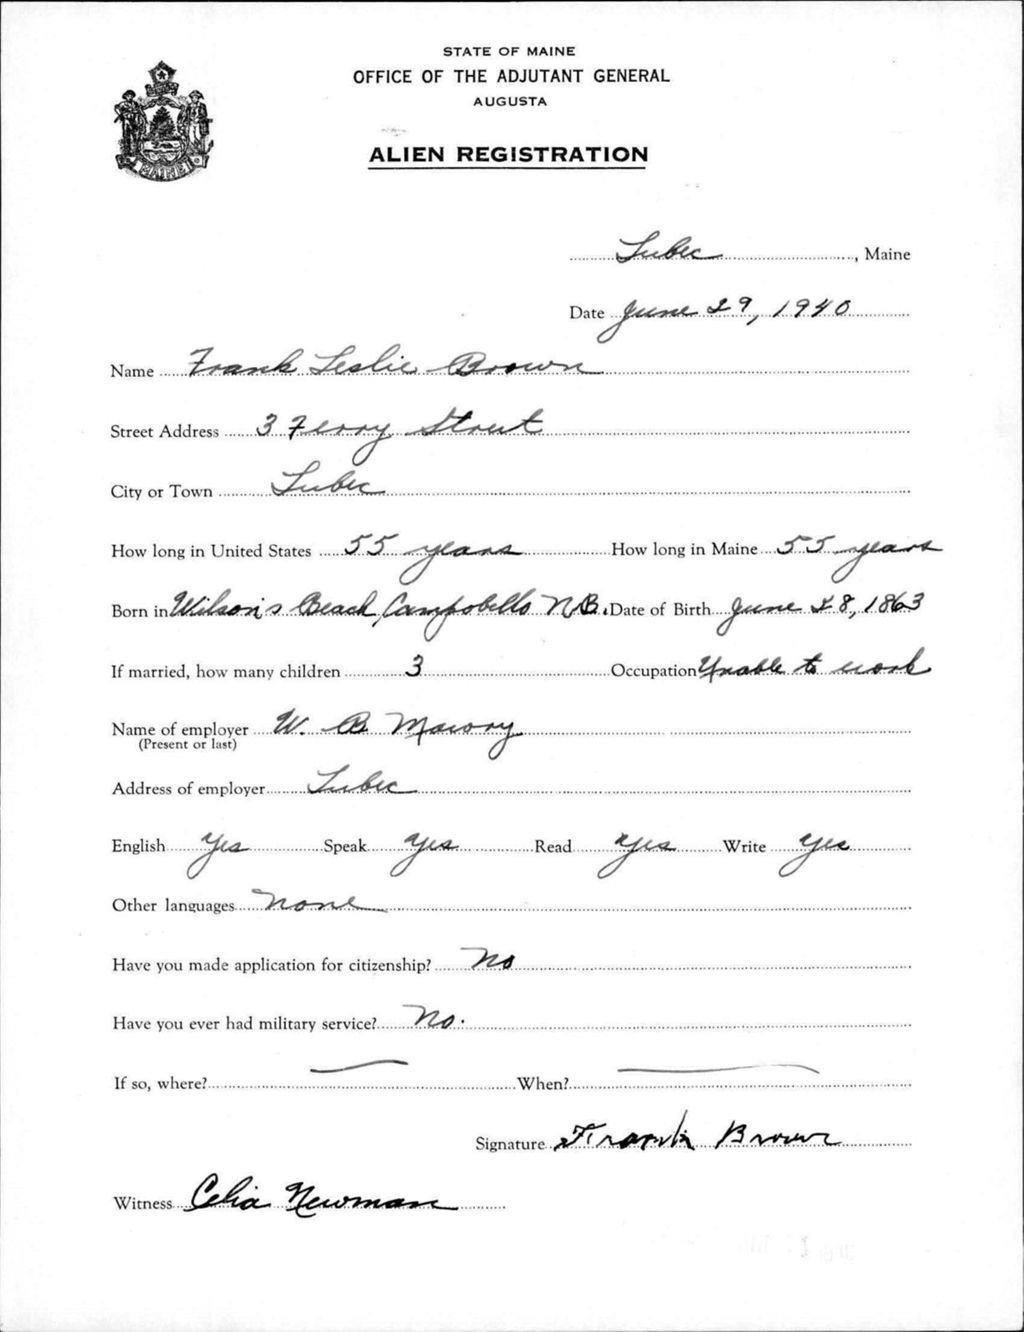 STATE OF MAINE
OFFICE OF THE ADJUTANT GENERAL
AUGUSTA
ALIEN REGISTRATION
MAINE
Lubec, Maine
Date June 29, 1940
Name Frank Leslie Brown
Street Address 3 Ferry Street
City or Town Lubec
How long in United States 55 years How long in Maine 55 years
Born in Wilson's Beach, Campobello N.B. Date of Birth June 28, 1863
If married, how many children 3 Occupation Unable to work
Name of employer W. B. Mawory
(Present or last)
Address of employer Lubec
English Yes Speak Yes Read Yes Write Yes
Other languages None
Have you made application for citizenship? No
Have you ever had military service? No.
If so, where? When?
Signature Frank Brown
Witness Celia Newman